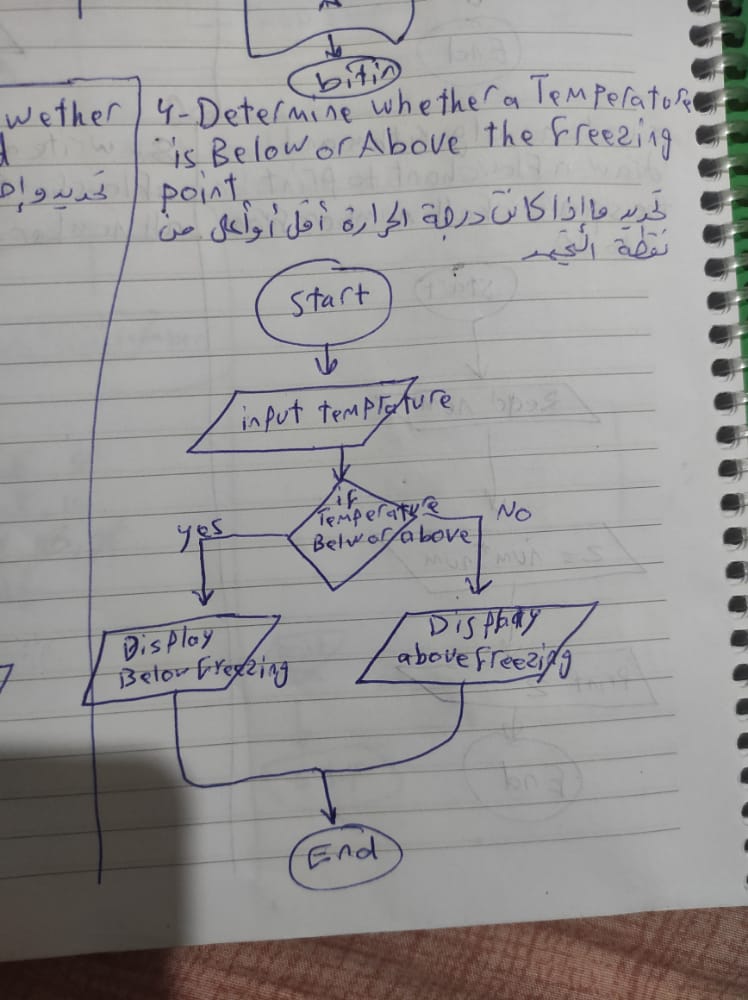 bitin
wether
4-Determine whether a Temperature
is Below or Above the freezing
point
تحديد ما إذا كانت درجة الحرارة أقل أو أعلى من
نقطة التجمد
Start
input temprature
if
Temperature
Below or above
yes
No
Display
Below freezing
Display
above freezing
End